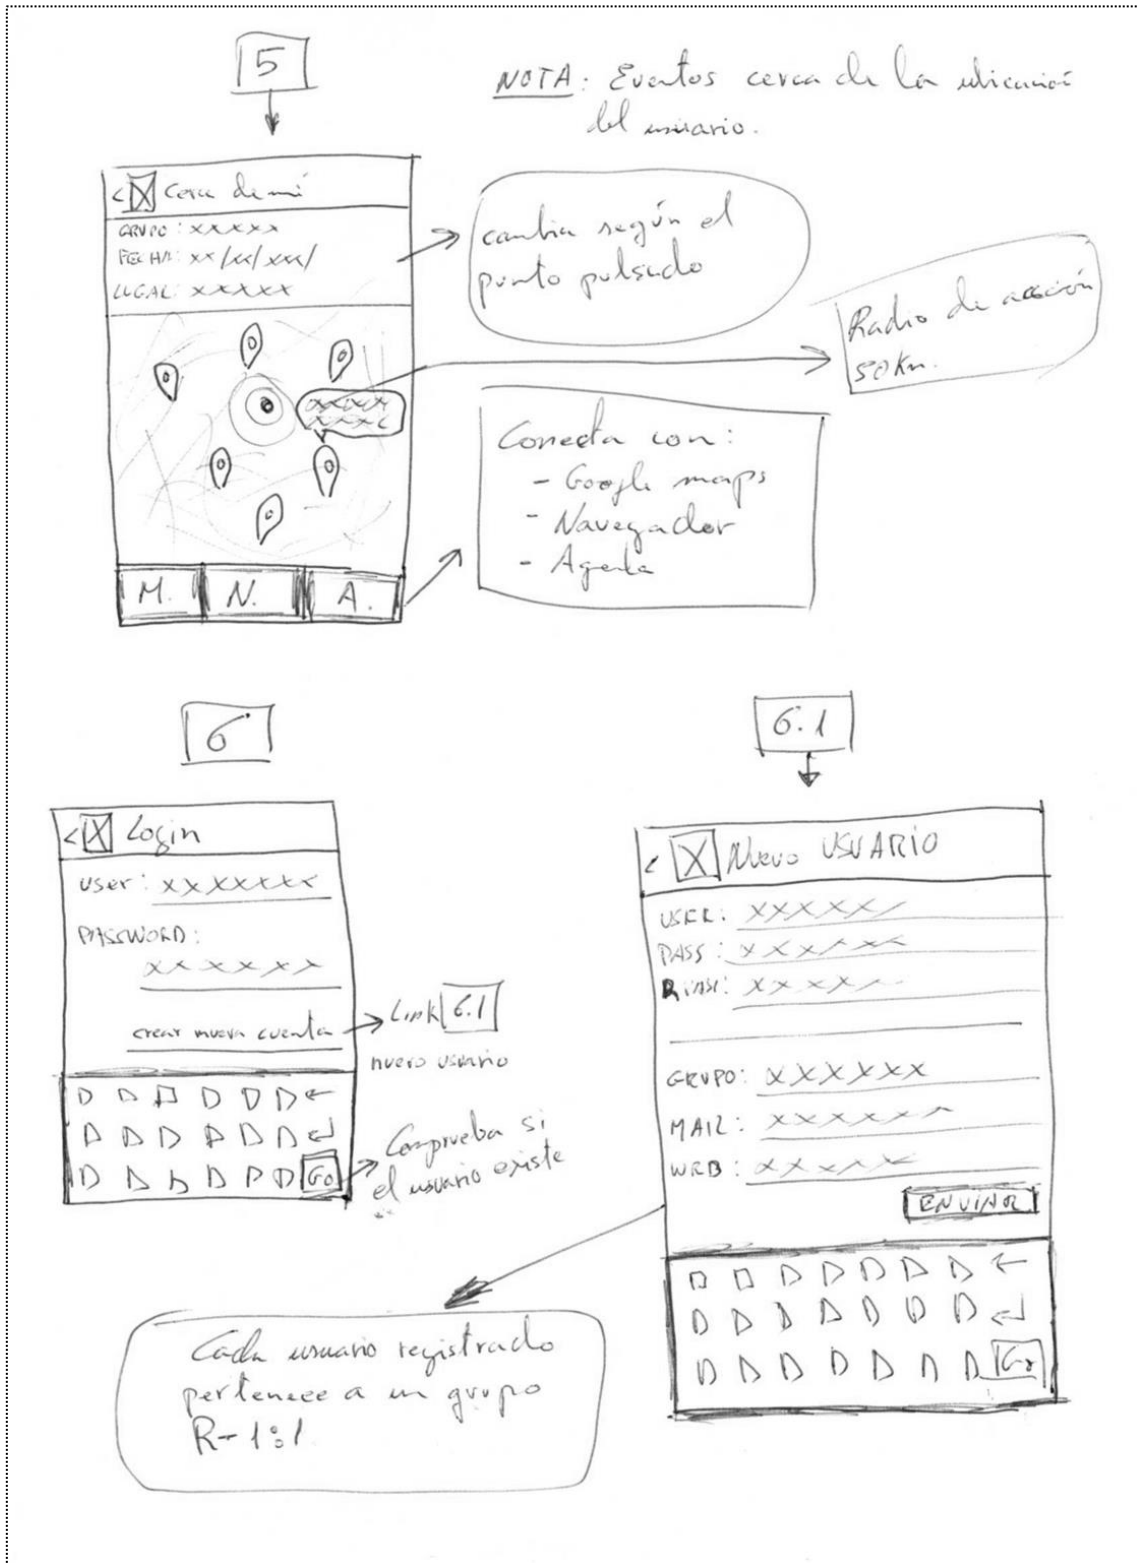 5
NOTA: Eventos cerca de la ubicación
del usuario.
< X Cerca de mí
GRUPO: XXXXX
FECHA: XX/XX/XXX/
LUGAR: XXXXX
cambia según el
punto pulsado
Radio de acción
50 Km.
XXXXX
XXXX
Conecta con:
- Google maps
- Navegador
- Agenda
M. N. A.
6
< X Login
User: XXXXXXX
PASSWORD:
XXXXXX
crear nueva cuenta
Link 6.1
nuevo usuario
Go
Comprueba si
el usuario existe
6.1
< X Nuevo USUARIO
USER: XXXXXX
PASS: XXXXXX
R.PASS: XXXXX
GRUPO: XXXXXX
MAIL: XXXXXX
WEB: XXXXX
ENVIAR
Go
Cada usuario registrado
pertenece a un grupo
R-1:1